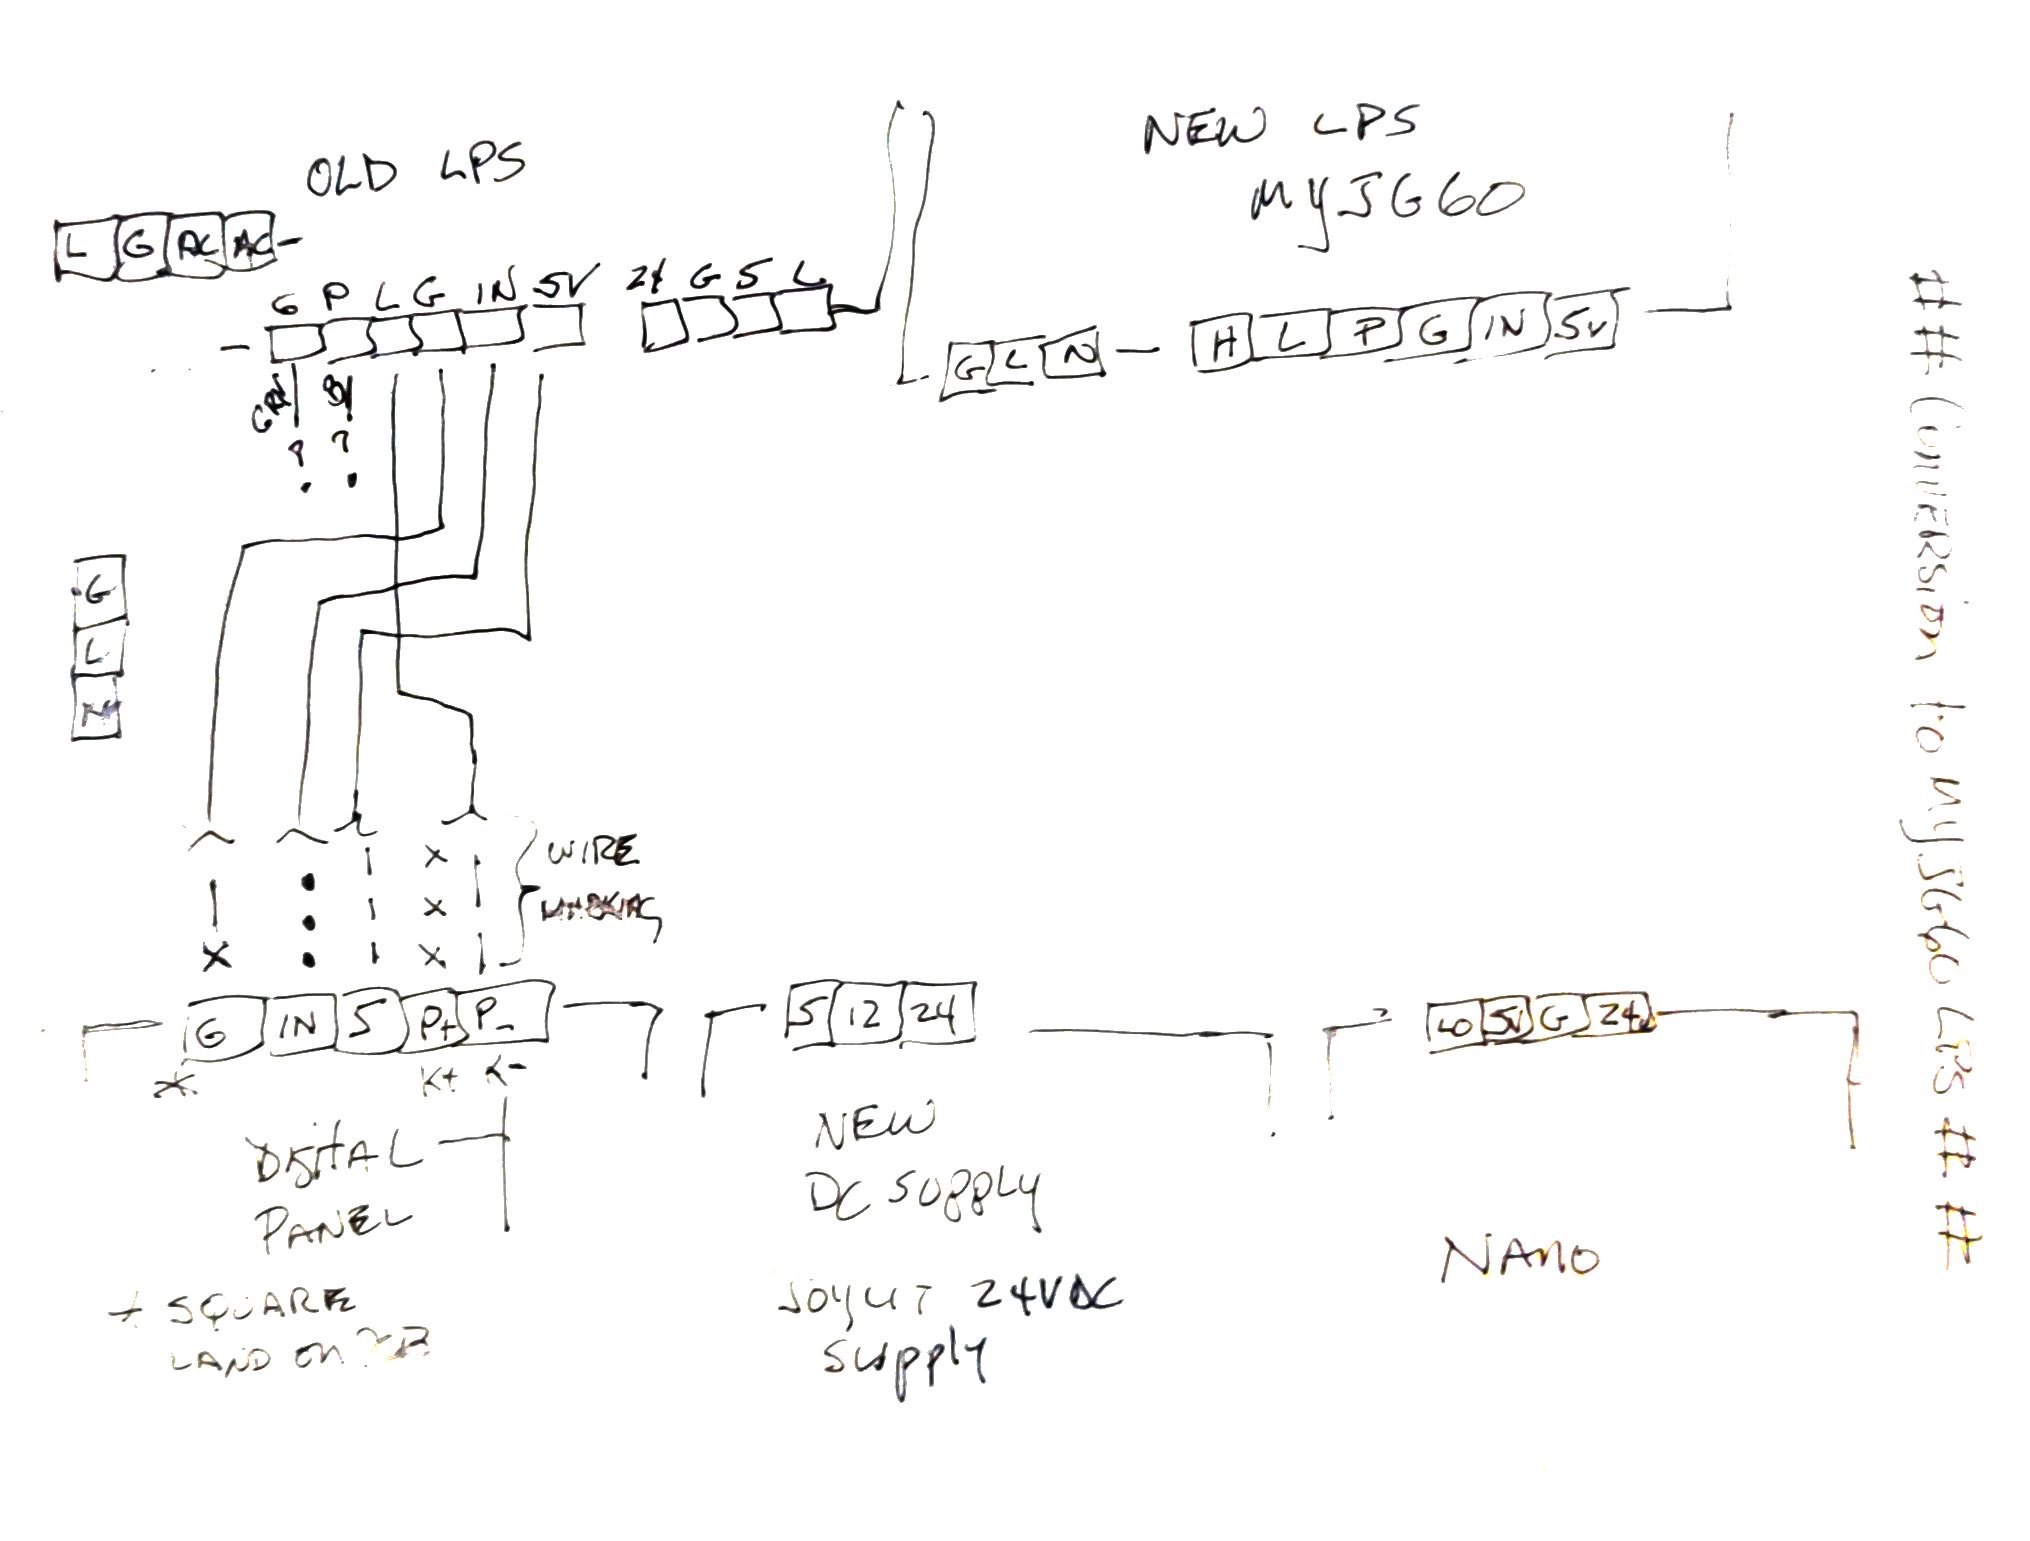 OLD LPS
L G AC AC
G P L G IN 5V
24 G 5 L
GRN
? ?
NEW LPS
MYJG60
G L N
H L P G IN 5V
G
L
N
X
X
X X
WIRE
MARKING
G IN 5 P+ P-
*
K+ K-
DIGITAL
PANEL
* SQUARE
LAND ON
5 12 24
NEW
DC SUPPLY
24VDC
SUPPLY
LO 5V G 24V
NANO
### CONVERSION to MYJG60 LPS ###